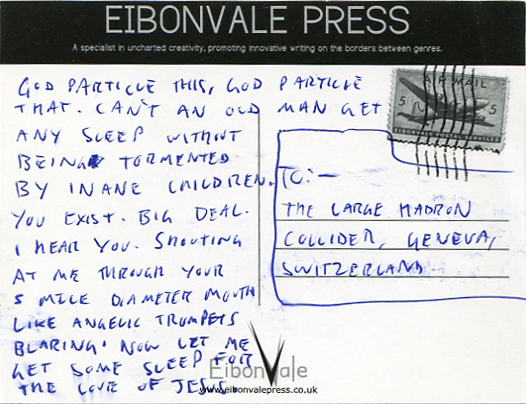 EIBONVALE PRESS
A specialist in uncharted creativity, promoting innovative writing on the borders between genres.
GOD PARTICLE THIS, GOD PARTICLE
THAT. CAN'T AN OLD MAN GET
ANY SLEEP WITHOUT
BEING TORMENTED
BY INANE CHILDREN.
YOU EXIST. BIG DEAL.
I HEAR YOU. SHOUTING
AT ME THROUGH YOUR
5 MILE DIAMETER MOUTH
LIKE ANGELIC TRUMPETS
BLARING! NOW LET ME
GET SOME SLEEP FOR
THE LOVE OF JESUS.
AIR MAIL
5 5
EIBONVALE POSTAL SERVICES
TO:—
THE LARGE HADRON
COLLIDER, GENEVA,
SWITZERLAND
EibonVale
www.eibonvalepress.co.uk